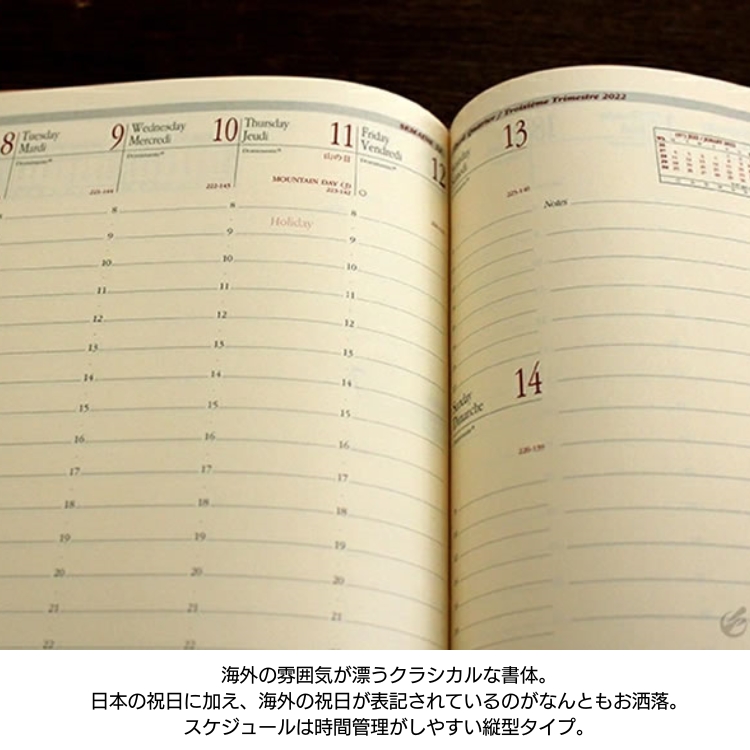 Troisième Trimestre 2022
8 Tuesday
Mardi
9 Wednesday
Mercredi
10 Thursday
Jeudi
11 Friday
Vendredi
12
13
Dominante
Dominante
Dominante
山の日
MOUNTAIN DAY
222-143
223-142
Holiday
Notes
8
9
10
11
12
13
14
15
16
17
18
19
20
21
22
8
9
10
11
12
13
14
15
16
17
18
19
20
21
22
8
9
10
11
12
13
14
15
16
17
18
19
20
21
14
Dimanche
海外の雰囲気が漂うクラシカルな書体。
日本の祝日に加え、海外の祝日が表記されているのがなんともお洒落。
スケジュールは時間管理がしやすい縦型タイプ。